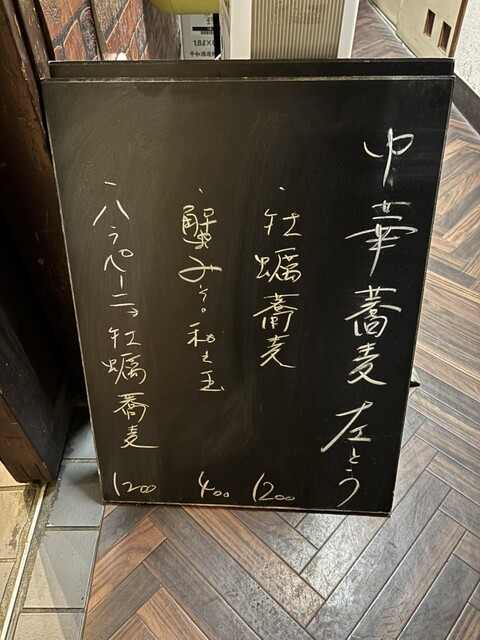 中華蕎麦 左とう
・牡蠣蕎麦 1200
・蟹みそ。和え玉 400
・ハラペーニョ牡蠣蕎麦 1200
1.8L×6